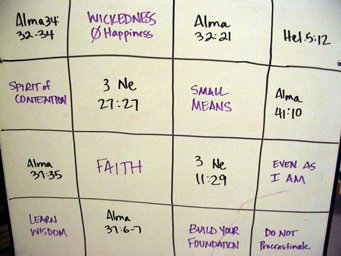 Alma 34:
32-34
WICKEDNESS
Ø Happiness
Alma
32:21
Hel. 5:12
SPIRIT OF
CONTENTION
3 Ne
27:27
SMALL
MEANS
Alma
41:10
Alma
37:35
FAITH
3 Ne
11:29
EVEN AS
I AM
LEARN
WISDOM
Alma
37:6-7
BUILD YOUR
FOUNDATION
DO NOT
Procrastinate